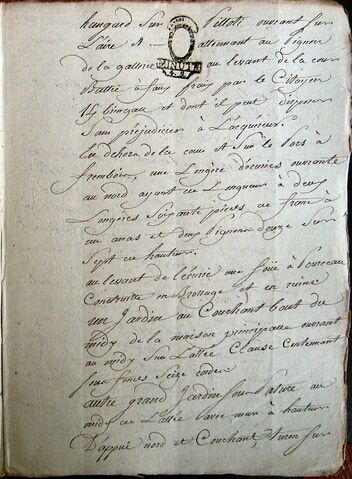 hangard Sur Pilloti ouvrant sur
L'aire et attennant au Pignon
de la gallerie au levant de la cour
Battie à faux frais par le Citoyen
et dont il peut Disposer
Sans préjudicier à L'acquéreur.
En dehors de la cour et Sur le
une Longère D'écuries ouvrante
au nord ayant en Longueur à deux
Longères Soixante pieds, de franc à
un and et deux Pignons douze Sur
Sept en hauteur.
au levant de l'écurie une à Pourceau
Construite en et en ruine
un Jardin au Couchant bout du
midy de la maison principalle ouvrant
au midy Sur L'allée Clause Contenant
Seize cordes
autre grand Jardin au
midy de L'allée Savec mur à hauteur
D'appui nord et Couchant, Sur